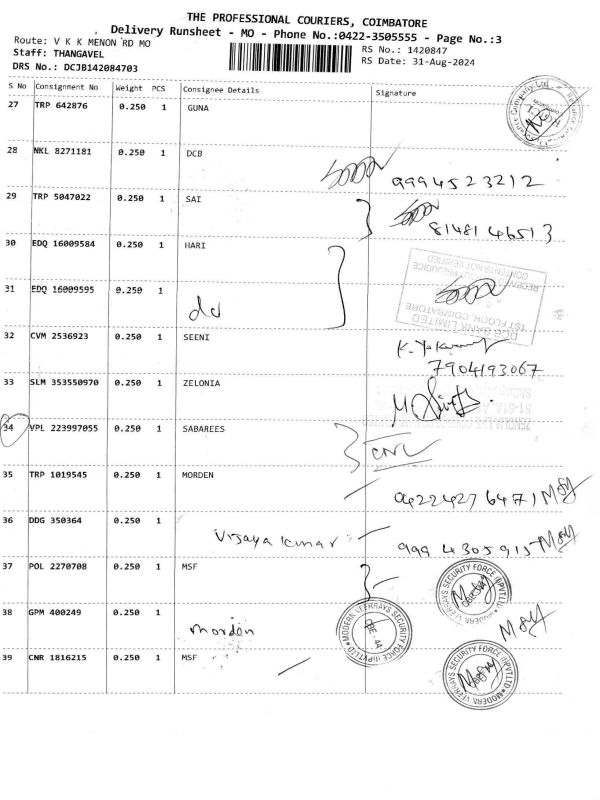 THE PROFESSIONAL COURIERS, COIMBATORE
Delivery Runsheet - MO - Phone No.:0422-3505555 - Page No.:3
Route: V K K MENON RD MO
RS No.: 1420847
Staff: THANGAVEL
RS Date: 31-Aug-2024
DRS No.: DCJB142084703
S No Consignment No Weight PCS Consignee Details Signature
27 TRP 642876 0.250 1 GUNA
28 NKL 8271181 0.250 1 DCB
9994523212
29 TRP 5047022 0.250 1 SAI
8148146513
30 EDQ 16009584 0.250 1 HARI
CONTENTS NOT VERIFIED
31 EDQ 16009595 0.250 1
DCB BANK LIMITED
1ST FLOOR, COIMBATORE
32 CVM 2536923 0.250 1 SEENI
7904193067
33 SLM 353550970 0.250 1 ZELONIA
34 VPL 223997055 0.250 1 SABAREES
35 TRP 1019545 0.250 1 MORDEN
04224276471
36 DDG 350364 0.250 1
Vijaya Kumar
9994305915
37 POL 2270708 0.250 1 MSF
MODERN VEERRAYS SECURITY FORCE (I)PVT.LTD
38 GPM 400249 0.250 1
morden
MODERN VEERRAYS SECURITY FORCE (I)PVT.LTD
39 CNR 1816215 0.250 1 MSF
MODERN VEERRAYS SECURITY FORCE (I)PVT.LTD